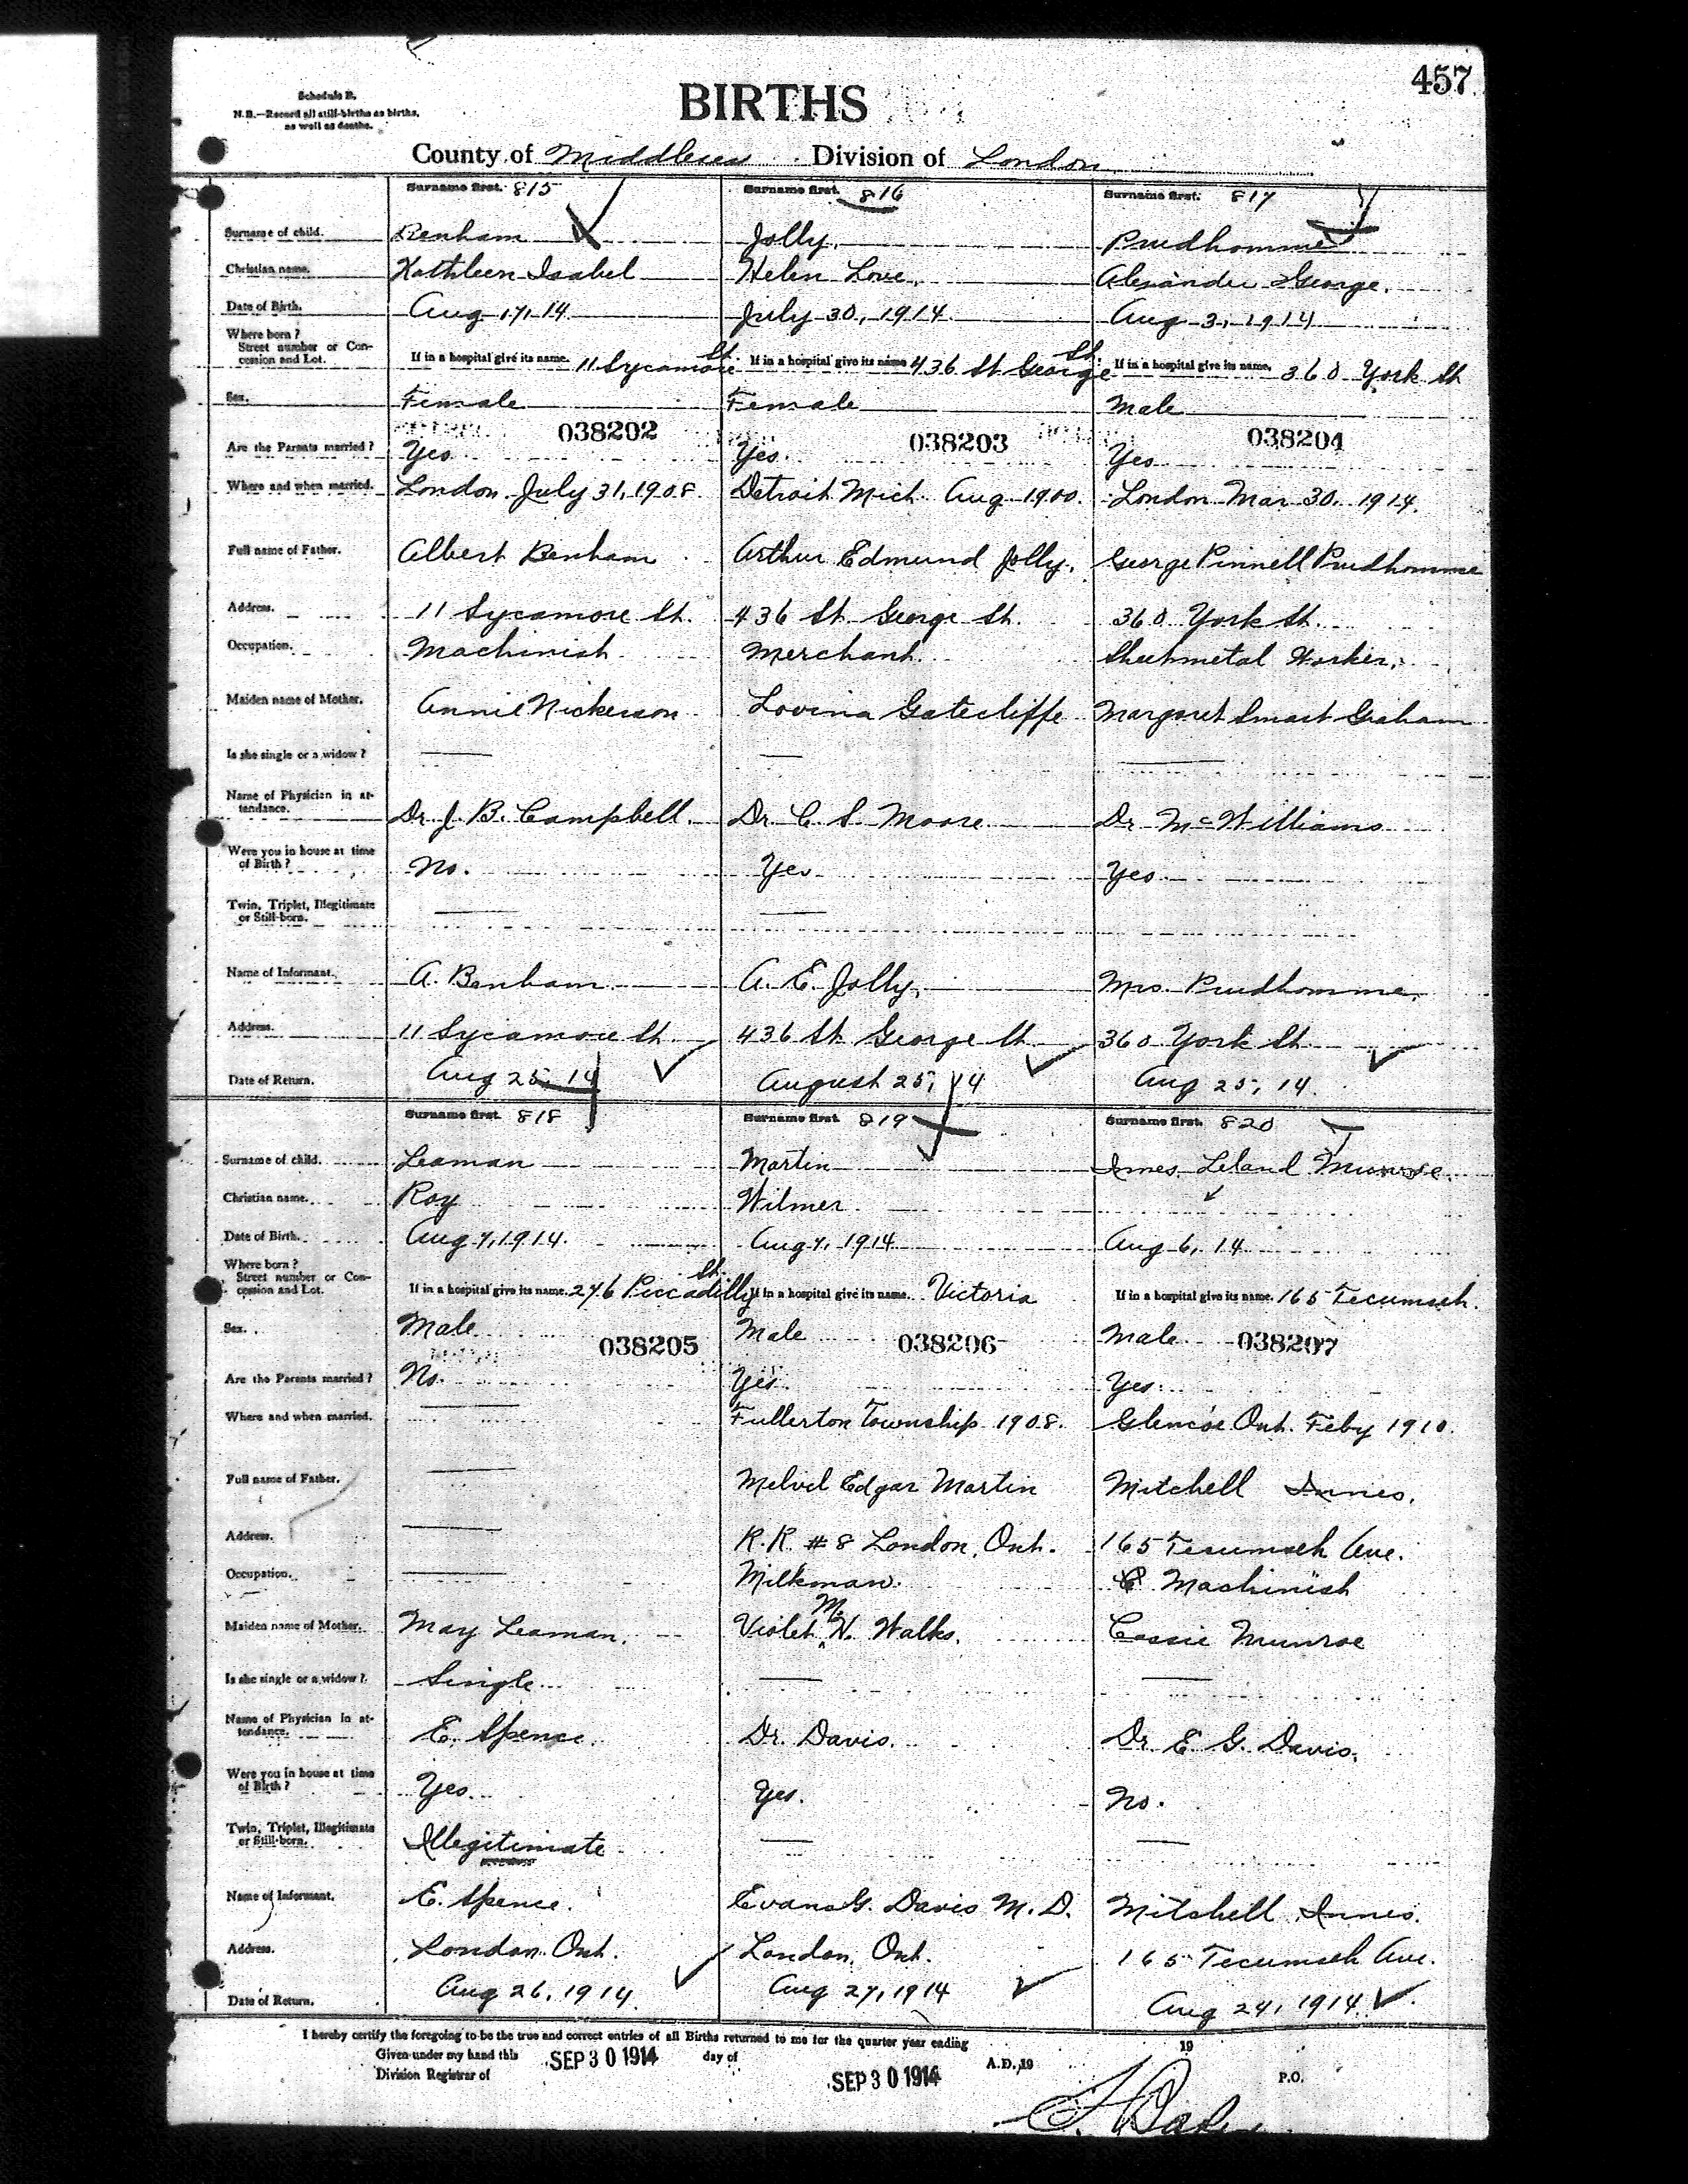 457
Schedule B.
N.B.—Record all still-births as births,
as well as deaths.
BIRTHS
County of Middlesex Division of London
Surname first. 815 Surname first. 816 Surname first. 817
Surname of child. Benham Jolly. Prudhomme
Christian name. Kathleen Isabel Helen Love. Alexander George.
Date of Birth. Aug 17, 14 July 30, 1914 Aug 3, 1914
Where born?
Street number or Con-
cession and Lot. If in a hospital give its name. 11 Sycamore St. If in a hospital give its name 436 St George St. If in a hospital give its name. 360 York St
Sex. Female Female Male
038202 038203 038204
Are the Parents married? Yes Yes. Yes
Where and when married. London July 31, 1908. Detroit Mich Aug 1900. London Mar 30. 1914.
Full name of Father. Albert Benham Arthur Edmund Jolly. George Pinnell Prudhomme
Address. 11 Sycamore St. 436 St George St. 360 York St.
Occupation. Machinist Merchant. Sheetmetal Worker.
Maiden name of Mother. Annie Nickerson Lovina Gatecliffe Margaret Smart Graham
Is she single or a widow?
Name of Physician in at-
tendance. Dr. J. B. Campbell. Dr C. S. Moore Dr McWilliams
Were you in house at time
of Birth? No. Yes Yes
Twin, Triplet, Illegitimate
or Still-born.
Name of Informant. A. Benham A. E. Jolly. Mrs. Prudhomme.
Address. 11 Sycamore St 436 St George St 360 York St
Date of Return. Aug 25, 14 August 25, 14 Aug 25, 14.
Surname first. 818 Surname first. 819 Surname first. 820
Surname of child. Leaman Martin Innes Leland Munroe.
Christian name. Roy Wilmer
Date of Birth. Aug 7, 1914. Aug 7, 1914 Aug 6, 14
Where born?
Street number or Con-
cession and Lot. If in a hospital give its name. 276 Piccadilly St. If in a hospital give its name. Victoria If in a hospital give its name. 165 Tecumseh.
Sex. Male Male Male
038205 038206 038207
Are the Parents married? No. Yes. Yes.
Where and when married. Fullerton Township 1908. Glencoe Ont. Feby 1910.
Full name of Father. Melvil Edgar Martin Mitchell Innes.
Address. R.R. #8 London, Ont. 165 Tecumseh Ave.
Occupation. Milkman. Machinist
Maiden name of Mother. May Leaman. Violet M. W. Walks. Cassie Munroe
Is she single or a widow? Single
Name of Physician in at-
tendance. E. Spence. Dr. Davis. Dr E. G. Davis.
Were you in house at time
of Birth? Yes. Yes. No.
Twin, Triplet, Illegitimate
or Still-born. Illegitimate
Name of Informant. E. Spence. Evans G. Davis M. D. Mitchell Innes.
Address. London Ont. London, Ont. 165 Tecumseh Ave.
Date of Return. Aug 26, 1914. Aug 27, 1914 Aug 24, 1914
I hereby certify the foregoing to be the true and correct entries of all Births returned to me for the quarter year ending 19
Given under my hand this SEP 30 1914 day of SEP 30 1914 A.D., 19
Division Registrar of P.O.